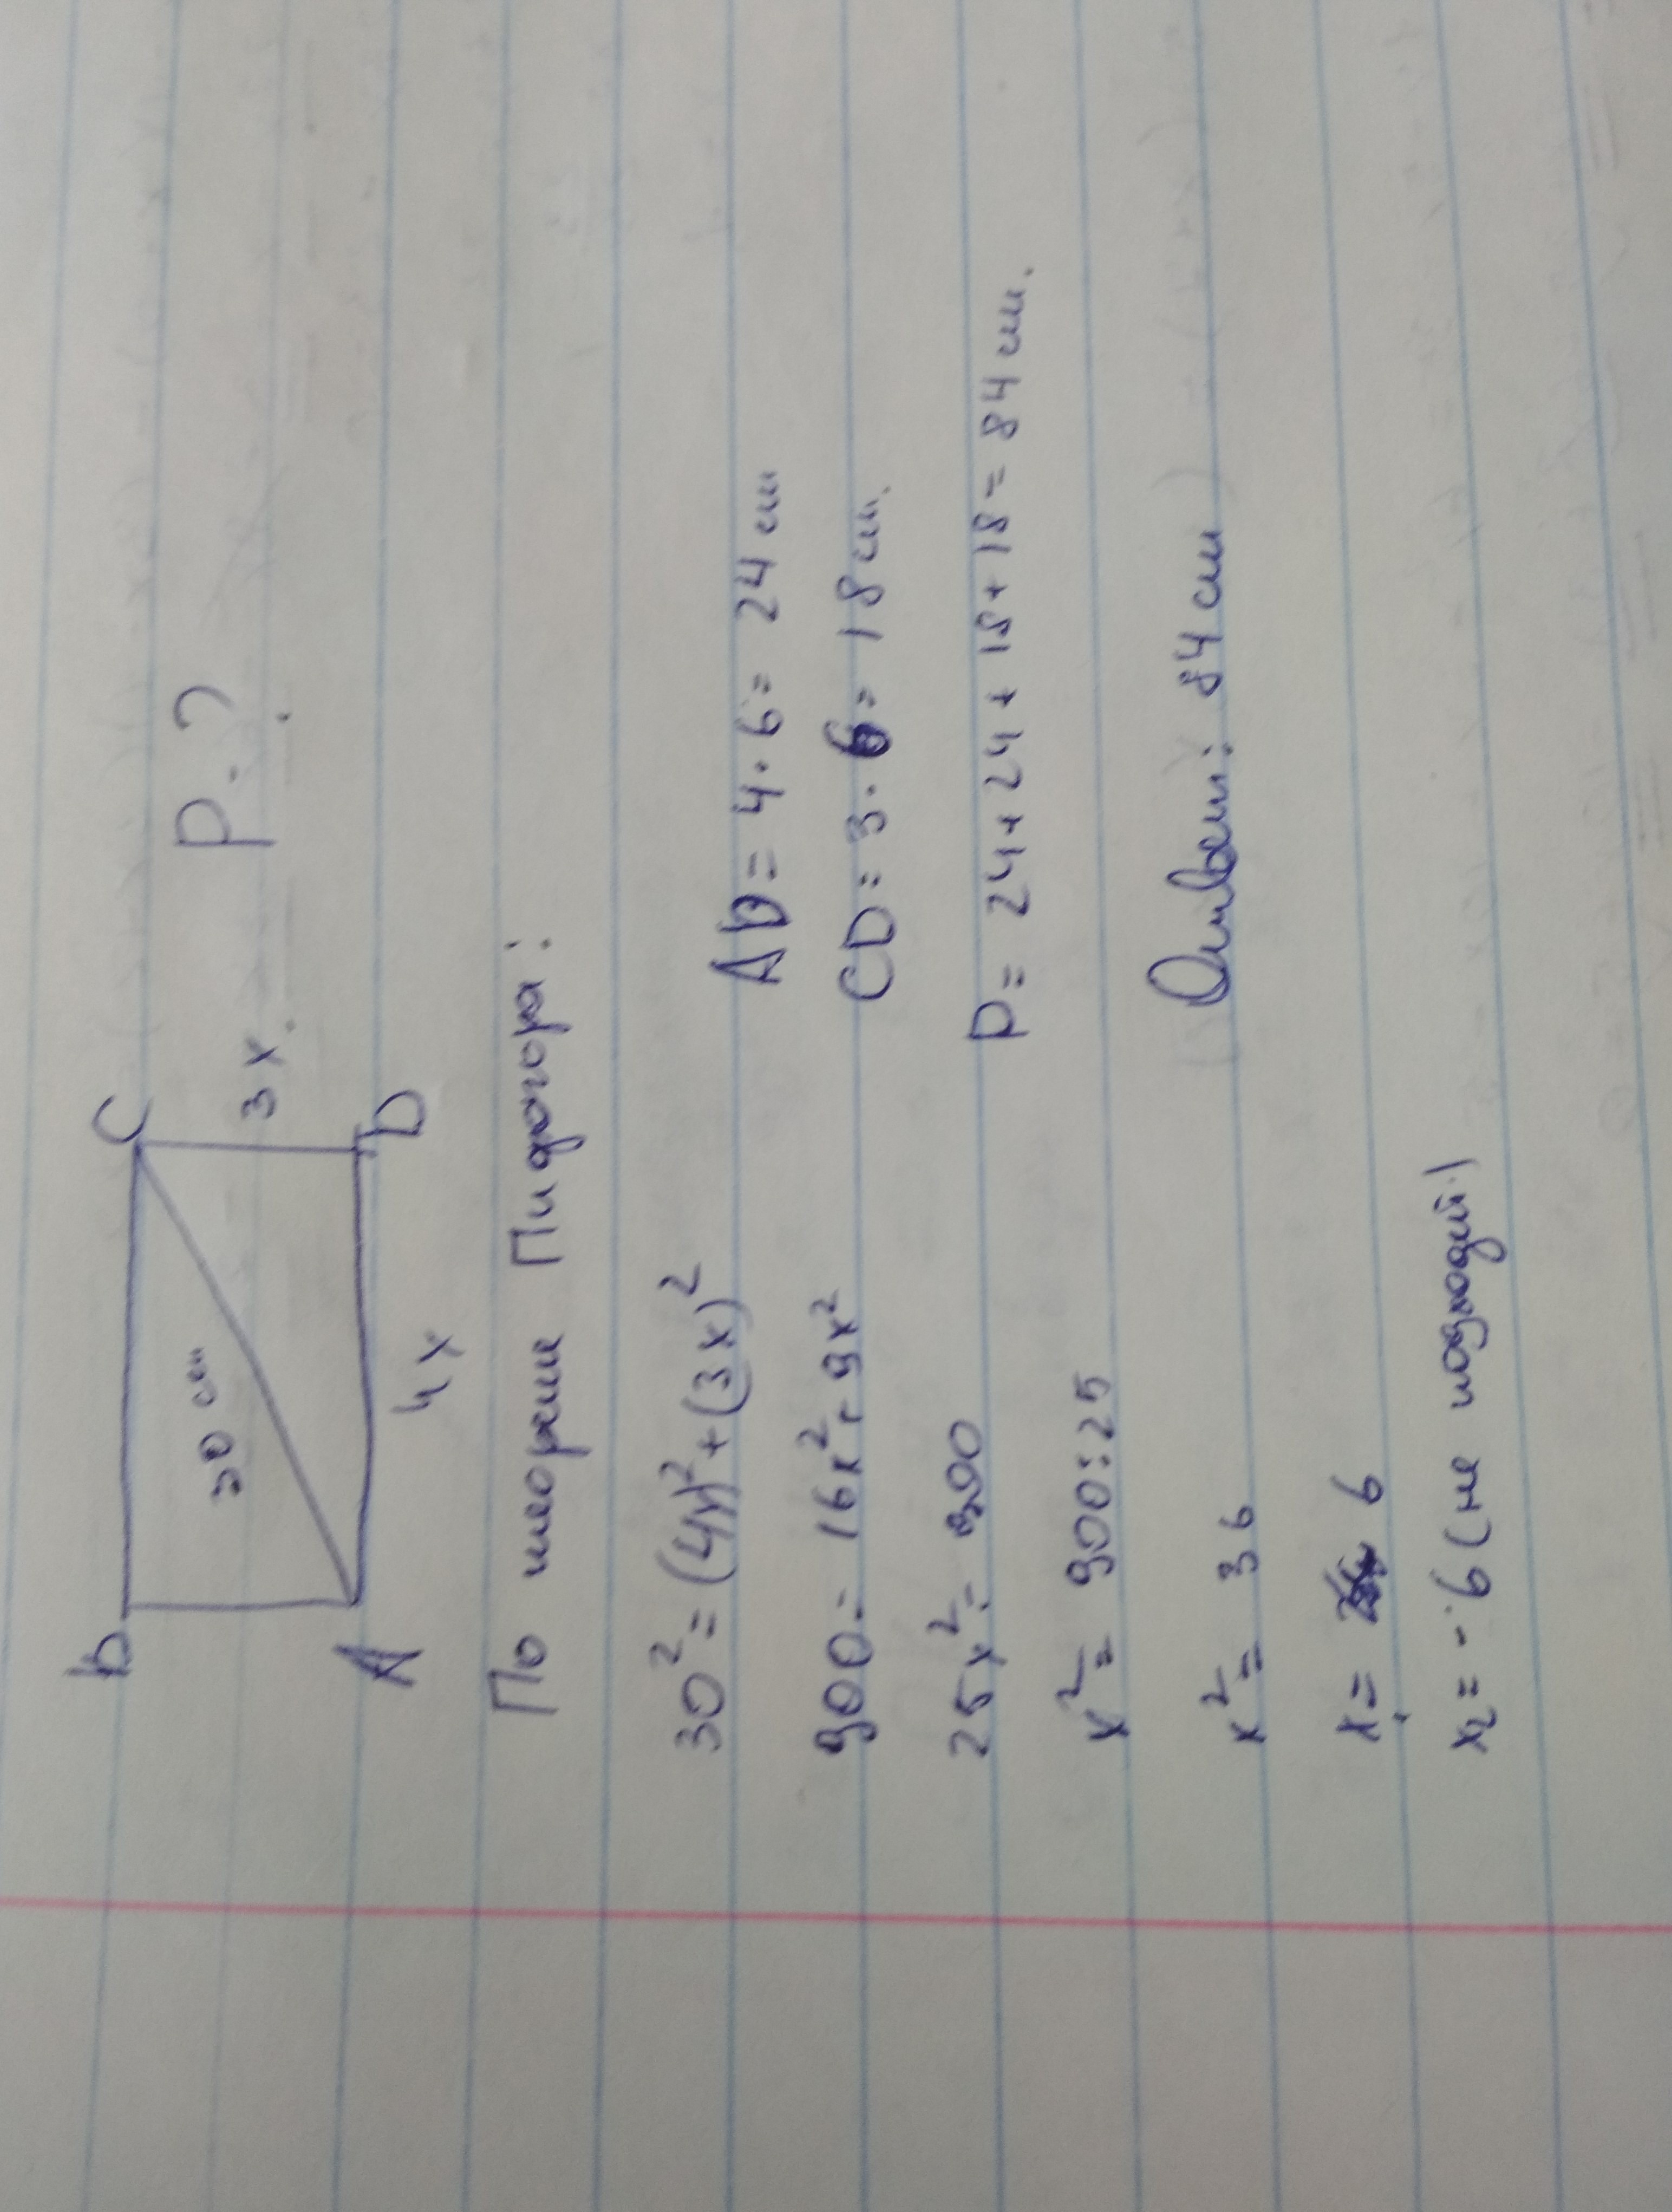 B C
30 см
3x.
P-?
A D
4x
По теореме Пифагора:
30² = (4x)² + (3x)²
900 = 16x² + 9x²
25x² = 900
x² = 900:25
x² = 36
x = 6
x₂ = -6 (не подходит).
AD = 4·6 = 24 см
CD = 3·6 = 18 см.
P = 24+24+18+18 = 84 см.
Ответ: 84 см